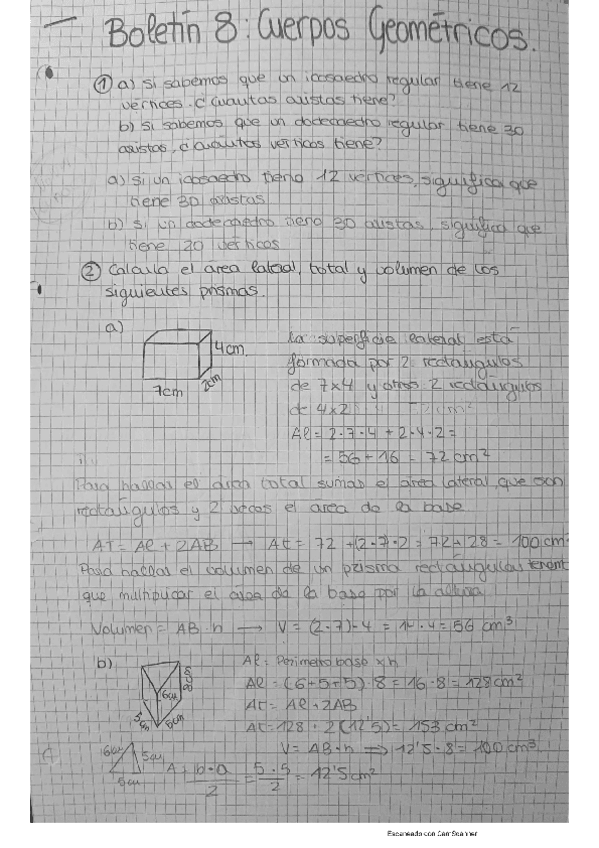 Boletín 8: Cuerpos Geométricos.
① a) si sabemos que un icosaedro regular tiene 12
vértices. ¿Cuántas aristas tiene?
b) si sabemos que un dodecaedro regular tiene 30
aristas, ¿Cuántos vértices tiene?
a) si un icosaedro tiene 12 vértices, significa que
tiene 30 aristas
b) si un dodecaedro tiene 30 aristas, significa que
tiene 20 vértices
② Calcula el área lateral, total y volumen de los
siguientes prismas.
a)
4cm.
7cm
2cm
La superficie lateral está
formada por 2 rectángulos
de 7x4 y otros 2 rectángulos
de 4x2
Al = 2·7·4 + 2·4·2 =
= 56 + 16 = 72 cm²
Para hallar el área total sumas el área lateral, que son
rectángulos y 2 veces el área de la base
AT = Al + 2AB → At = 72 + (2·7·2 = 72 + 28 = 100 cm²
Para hallar el volumen de un prisma rectángulas
que multiplicar el área de la base por la altura
Volumen = AB·h → V = (2·7)·4 = 14·4 = 56 cm³
b)
8cm
6cm
5cm
5cm
Al = Perímetro base x h
Al = (6+5+5)·8 = 16·8 = 128 cm²
At = Al + 2AB
At = 128 · 2(12'5) = 153 cm²
V = AB·h ⟹ 12'5·8 = 100 cm³
6cm
5cm
5cm
A = b·a/2 = 5·5/2 = 12'5 cm²
Escaneado con CamScanner